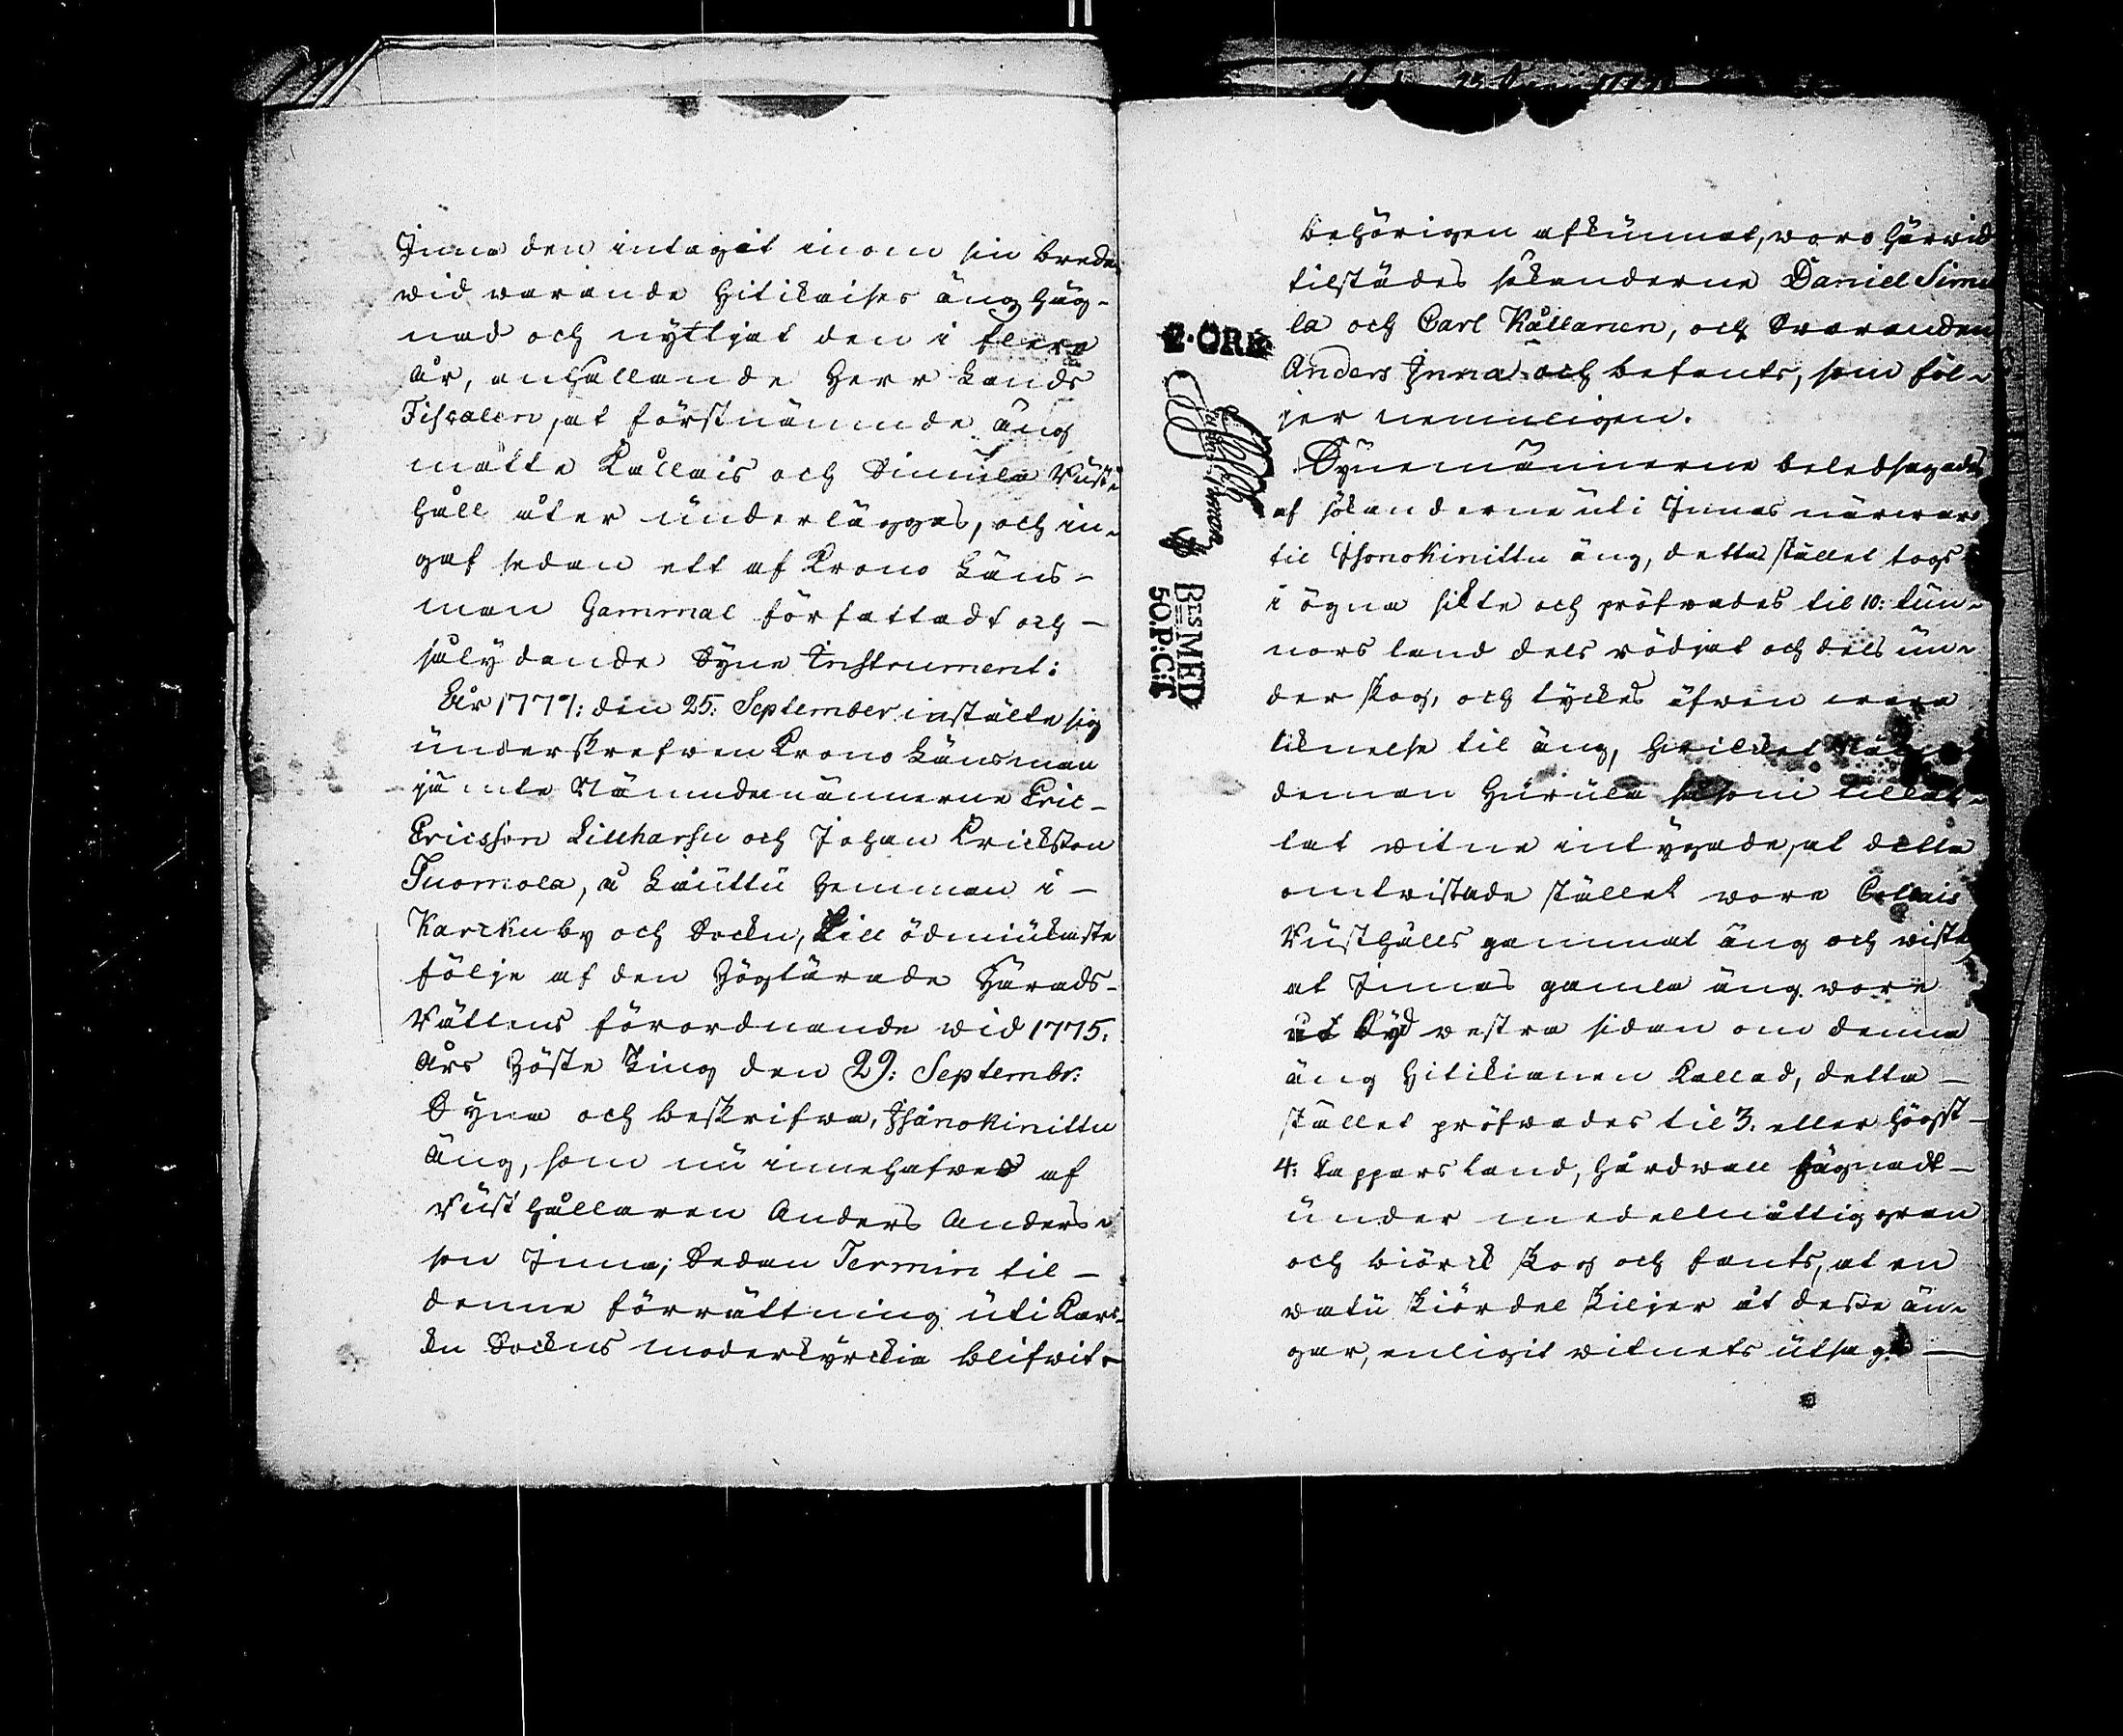 Jnna den intagit inom sin brede
wid warande Hitikaises äng häg-
nad och nyttjat den i flere
år, anhållande Herr Lands
Fiscalen, at förstnämnde äng
måtte Kållais och Simula Rust-
håll åter underläggas, och in-
gaf sedan ett af Krono Läns-
man Gammal författadt och
sålydande Syne Instrument:
År 1777: den 25: September instälte sig
underskrefwen Krono Länsman
jämte Nämndemännerne Eric
Ericsson Lillharju och Johan Erickson
Tuomola, å Lauttu Hemman i
Karcku by och Sockn, till ödmiukaste
följe af den Höglärade Härads-
Rättens förordnande wid 1775.
Års Höste Ting den 29: Septembr:
Syna och beskrifwa, Jsonokinittu
Äng, som nu innehafwes af
Rusthållaren Anders Anders-
son Jnna; Sedan Termin til
denne förrättning uti Karc-
ku Sockns moderkyrckia blifwit
behörigen afkunnat, woro härwid
tilstädes sökanderne Daniel Simu
la och Carl Kållanen, och Swaranden
Anders Jnna och befants, som föl-
jer nemmligen.
Synemännerne beledsagades
af sökanderne uti Jnnas närwaro
til Jsonokinittu äng, detta stället togs
i ögna sikte och pröfwades til 10: tun-
nors land dels rödjat och dels un-
der skog, och tyckes äfwen wara
liknelse til äng, hwilket Näm
deman Hurula såsom tillåt-
lat witne intygade, at detta
omtwistade stället wore Collais
Rusthålls gammal äng och wiste
at Jnnas gamla äng wore
ut Syd westra sidan om denna
äng Hitikianen kallad, detta
stället pröfwades til 3. eller högst
4: kappars land, hårdwall hägnadt
under medellmåttig gran
och biörck skog och fants, at en
watu kiördel skiljer åt desse än-
gar, enligit witnets utsago
2·ÖR
BLS MED
50.P:C:T